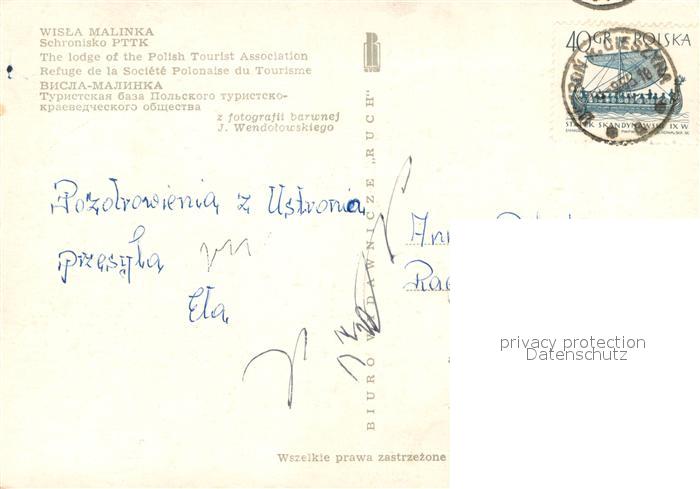 WISŁA MALINKA
Schronisko PTTK
The lodge of the Polish Tourist Association
Refuge de la Société Polonaise du Tourisme
ВИСЛА-МАЛИНКА
Туристская база Польского туристско-
краеведческого общества
z fotografii barwnej
J. Wendołowskiego
RUCH
BIURO WYDAWNICZE „RUCH"
40 GR POLSKA
STATEK SKANDYNAWSKI IX W
Pozdrowienia z Ustronia
przesyła
Ela
privacy protection
Datenschutz
Wszelkie prawa zastrzeżone